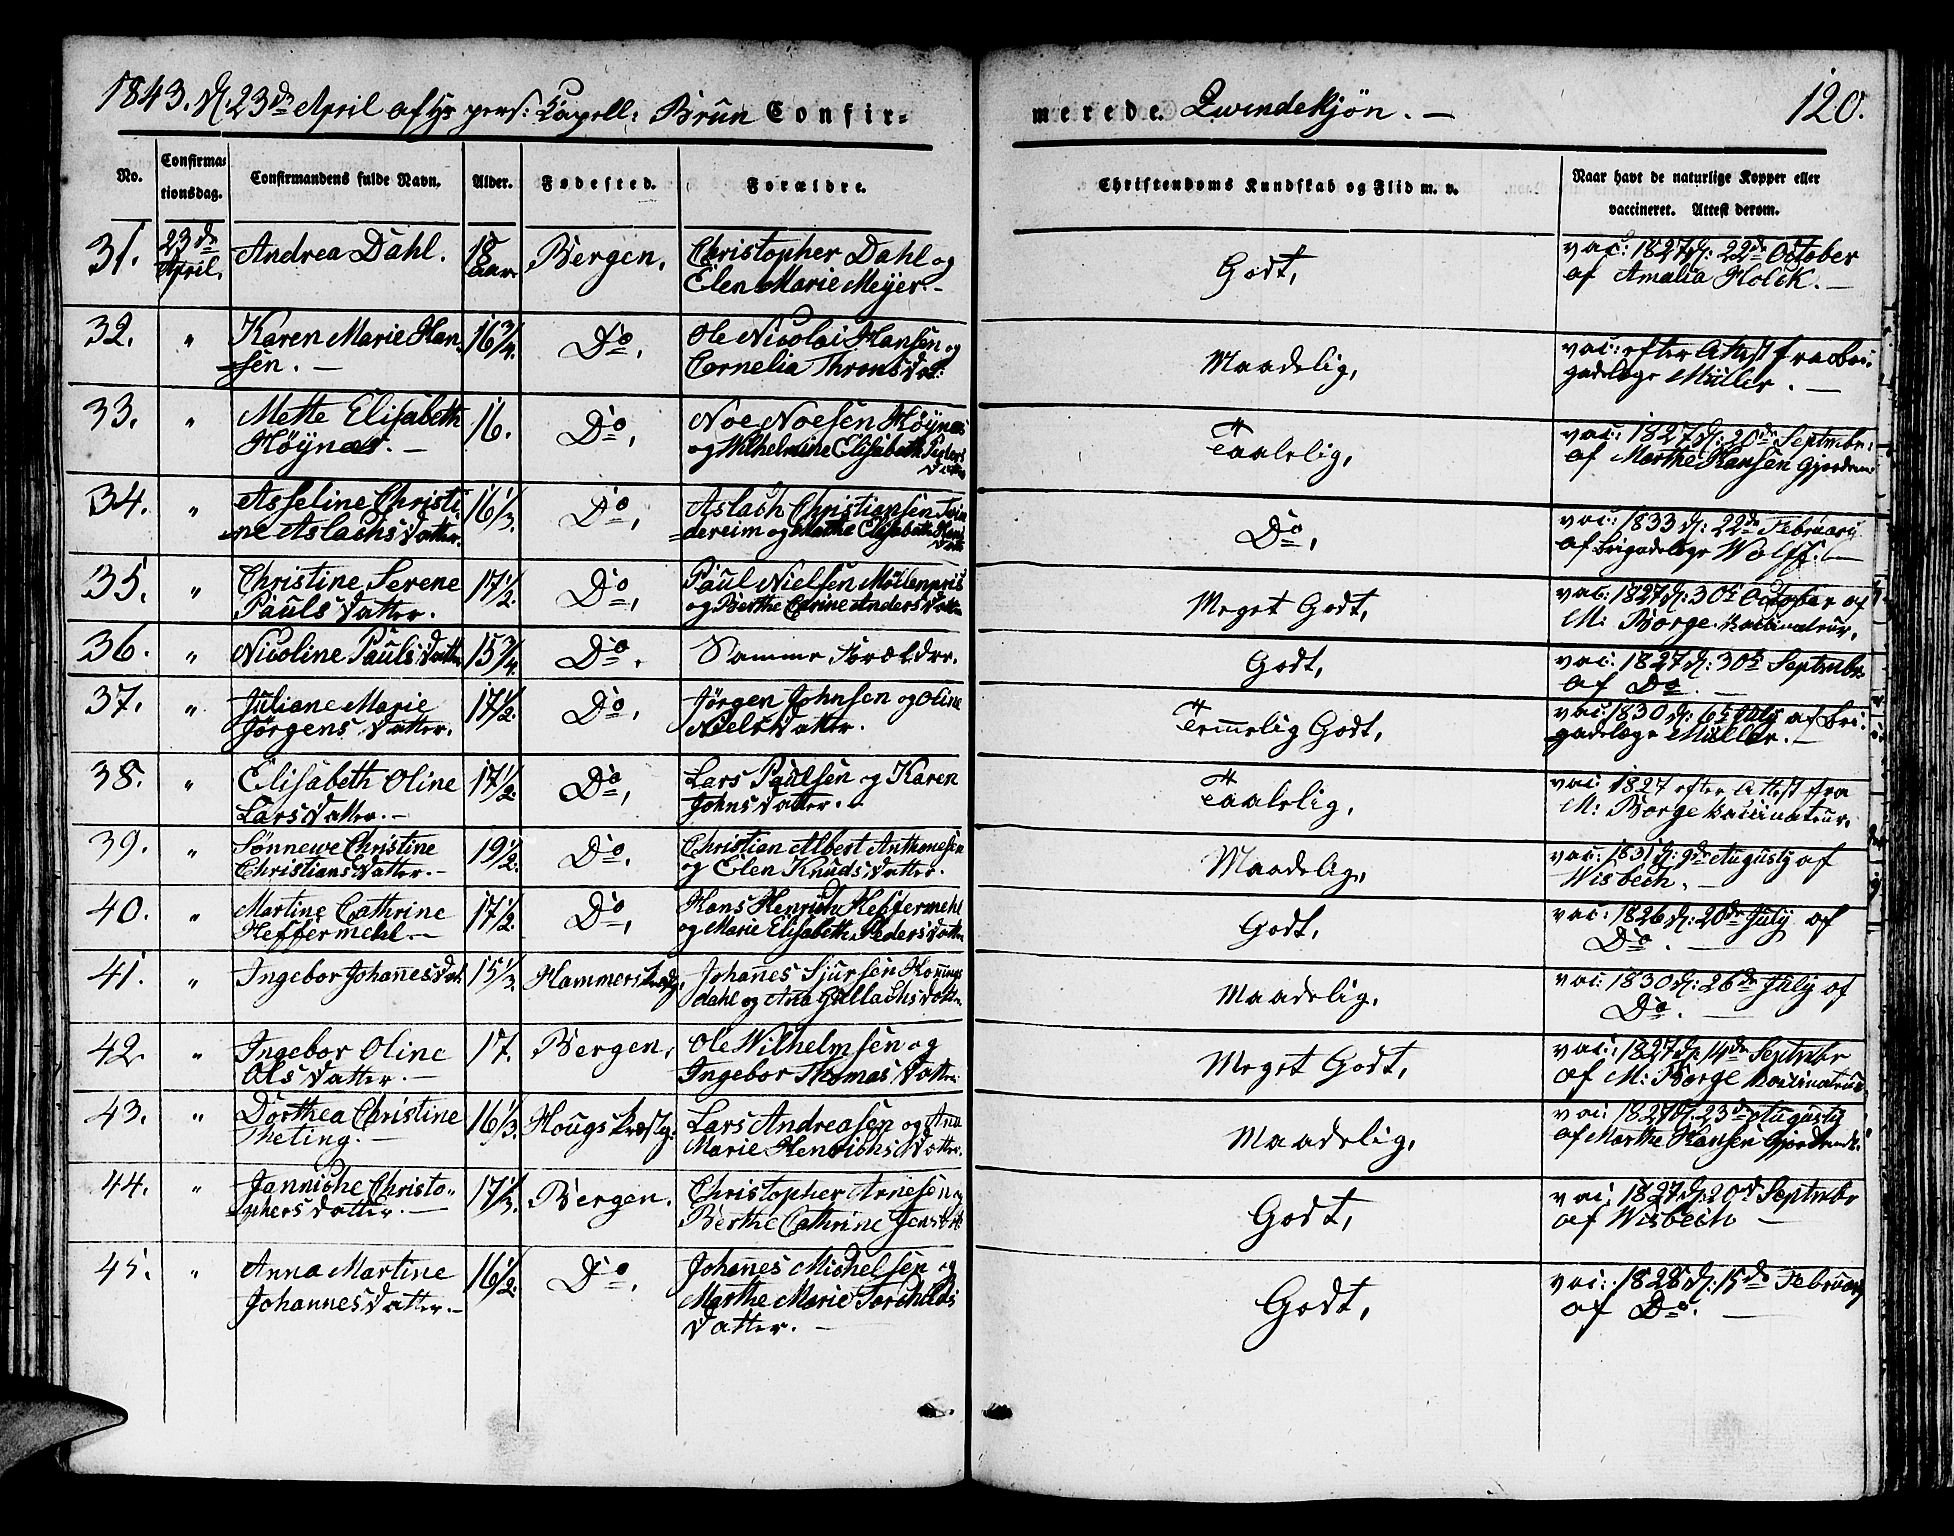 1843. d: 23de April af hr pers: Capell: Brun Confir-
merede. Qvindekjön. —
120.
No.
Confirma-
tionsdag.
Confirmandens fulde Navn.
Alder.
Fødested.
Forældre.
Christendoms Kundskab og Flid m. v.
Naar havt de naturlige Kopper eller
vaccineret. Attest derom.
31. 23de April. Andrea Dahl. 18 aar Bergen, Christopher Dahl og
Elen Marie Meyer. —
Godt,
vac: 1827 d: 22de October
af Amalia Holck. —
32. " Karen Marie Han-
sen. — 16 3/4. Do, Ole Nicolai Hansen og
Cornelia Throns Dat:
Maadelig,
vac: efter Attest fra Bri-
gadelæge Müller. —
33. " Mette Elisabeth
Höynæs. — 16. Do, Noe Noesen Höynæs
og Wilhelmine Elisabeth
Datter
Taalelig,
vac: 1827 d: 20de Septmbr:
af Marthe Hansen Gjordem
34. " Asseline Christi-
ne Aslachs Datter. 16 1/3. Do, Aslach Christiansen
dereim og Marthe Elisabeth
Do,
vac: 1833 d: 22de Februarii
af Brigadelæge Wolff. —
35. " Christine Serene
Pauls Datter. 17 1/2. Do, Paul Nielsen Möllenpris
og Berthe Catrine Anders Datter
Meget Godt,
vac: 1827 d: 30te October af
M: Borge Vaccinateur.
36. " Nicoline Pauls Datter 15 3/4. Do. Samme Forældre.
Godt,
vac: 1827 d: 30te Septmbr
af Do. —
37. " Juliane Marie
Jörgens Datter. 17 1/2. Do, Jörgen Johnsen og Oline
Niels Datter.
Temmelig Godt,
vac: 1830 d: 6te July af Bri-
gadelæge Müller. —
38. " Elisabeth Oline
Lars Datter. — 17 1/2. Do, Lars Paulsen og Karen
Johns Datter. —
Taalelig,
vac: 1827 efter Attest fra
M: Borge Vaccinateur,
39. " Sönnewe Christine
Christians Datter. — 19 1/2. Do, Christian Albert Anthonesen
og Elen Knuds Datter.
Maadelig,
vac: 1831 d: 9de Augusty af
Wisbech. —
40. " Martine Cathrine
Heffermehl. — 17 1/2. Do, Hans Henrich Heffermehl
og Marie Elisabeth Peders Datter
Godt,
vac: 1826 d: 20de July af
Do. —
41. " Ingebor Johannes Dat. 15 1/3. Hammers Præstg: Johanes Sjursen Konnings
dahl og Ana Gullachs Datter
Maadelig,
vac: 1830 d: 26de July af
Do. —
42. " Ingebor Oline
Ols Datter. — 17. Bergen, Ole Wilhelmsen og
Ingebor Thomas Datter.
Meget Godt,
vac: 1827 d: 14de Septmbr
af M: Borge Vaccinateur
43. " Dorthea Christine
Theting. — 16 1/3. Hougs Præstg: Lars Andreasen og Ana
Marie Henrichs Datter.
Maadelig,
vac: 1827 d: 23de Augusty
af Marthe Hansen Gjordmdr:
44. " Janniche Christo-
phers Datter. — 17 1/3. Bergen. Christopher Arnesen og
Berthe Cathrine Jens Dat
Godt,
vac: 1827 d: 20de Septmbr
af Wisbech —
45. " Anna Martine
Johannes Datter. — 16 1/2. Do. Johanes Michelsen og
Marthe Marie Torchilds
Datter. —
Godt,
vac: 1828 d: 15de Februarij
af Do. —